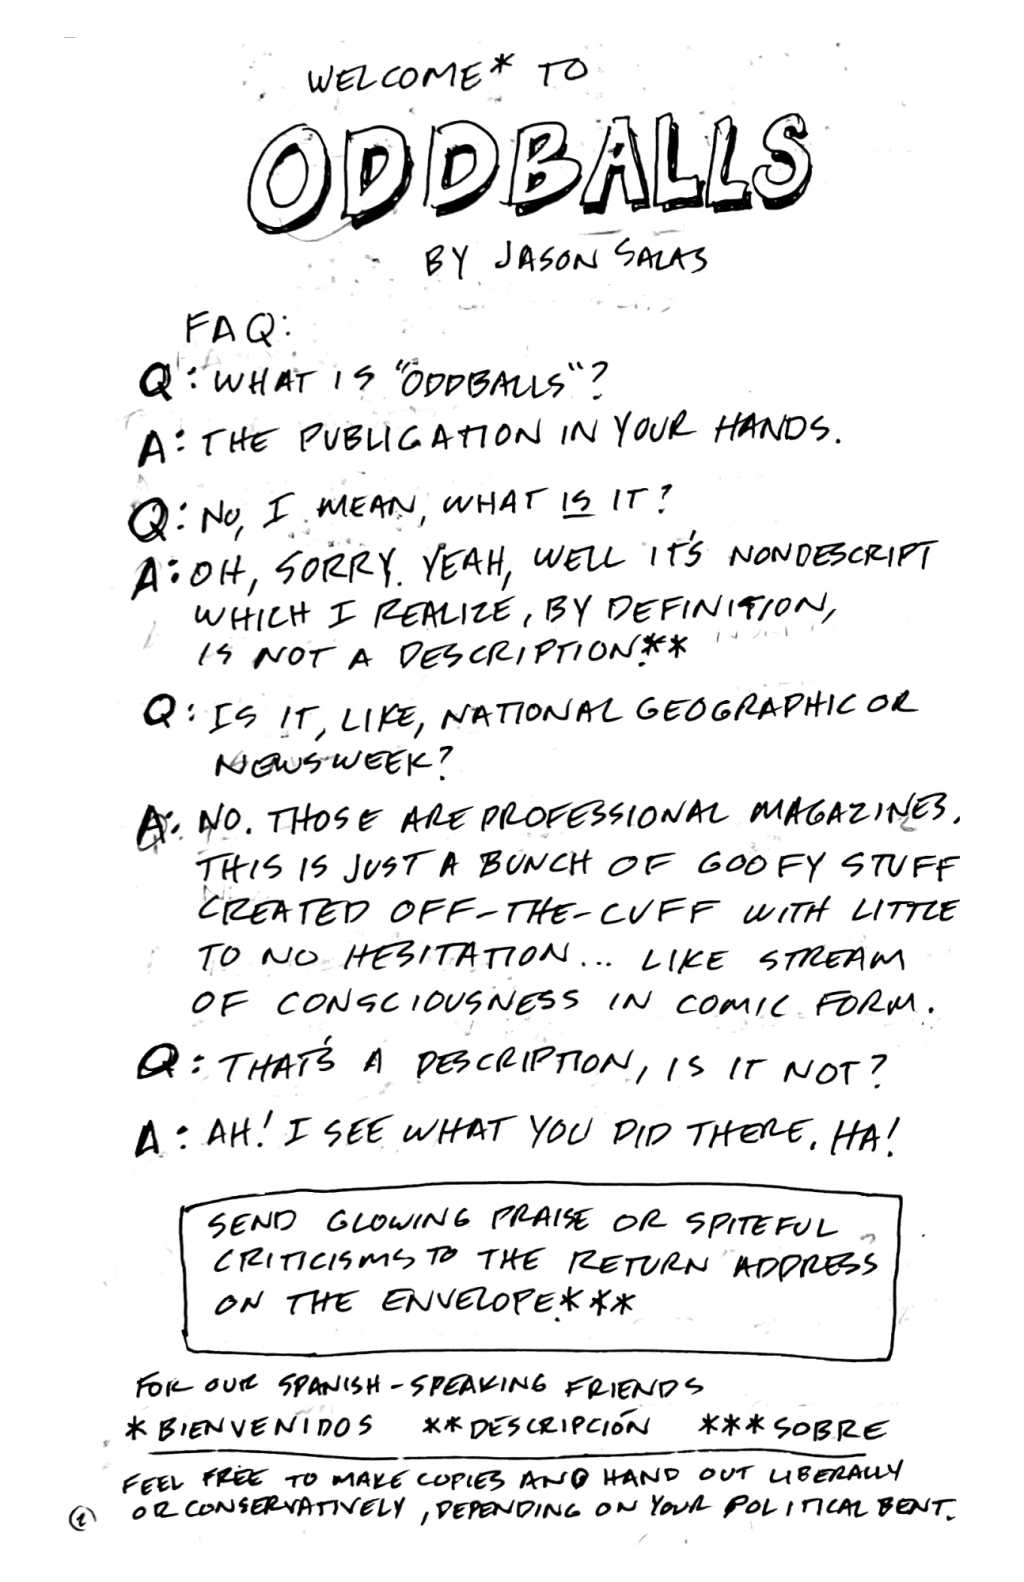 WELCOME* TO
ODDBALLS
BY JASON SALAS
FAQ:
Q: WHAT IS "ODDBALLS"?
A: THE PUBLICATION IN YOUR HANDS.
Q: NO, I MEAN, WHAT IS IT?
A: OH, SORRY. YEAH, WELL IT'S NONDESCRIPT
WHICH I REALIZE, BY DEFINITION,
IS NOT A DESCRIPTION.**
Q: IS IT, LIKE, NATIONAL GEOGRAPHIC OR
NEWSWEEK?
A: NO. THOSE ARE PROFESSIONAL MAGAZINES.
THIS IS JUST A BUNCH OF GOOFY STUFF
CREATED OFF-THE-CUFF WITH LITTLE
TO NO HESITATION... LIKE STREAM
OF CONSCIOUSNESS IN COMIC FORM.
Q: THAT'S A DESCRIPTION, IS IT NOT?
A: AH! I SEE WHAT YOU DID THERE. HA!
SEND GLOWING PRAISE OR SPITEFUL
CRITICISMS TO THE RETURN ADDRESS
ON THE ENVELOPE.***
FOR OUR SPANISH-SPEAKING FRIENDS
*BIENVENIDOS **DESCRIPCIÓN ***SOBRE
FEEL FREE TO MAKE COPIES AND HAND OUT LIBERALLY
OR CONSERVATIVELY, DEPENDING ON YOUR POLITICAL BENT.